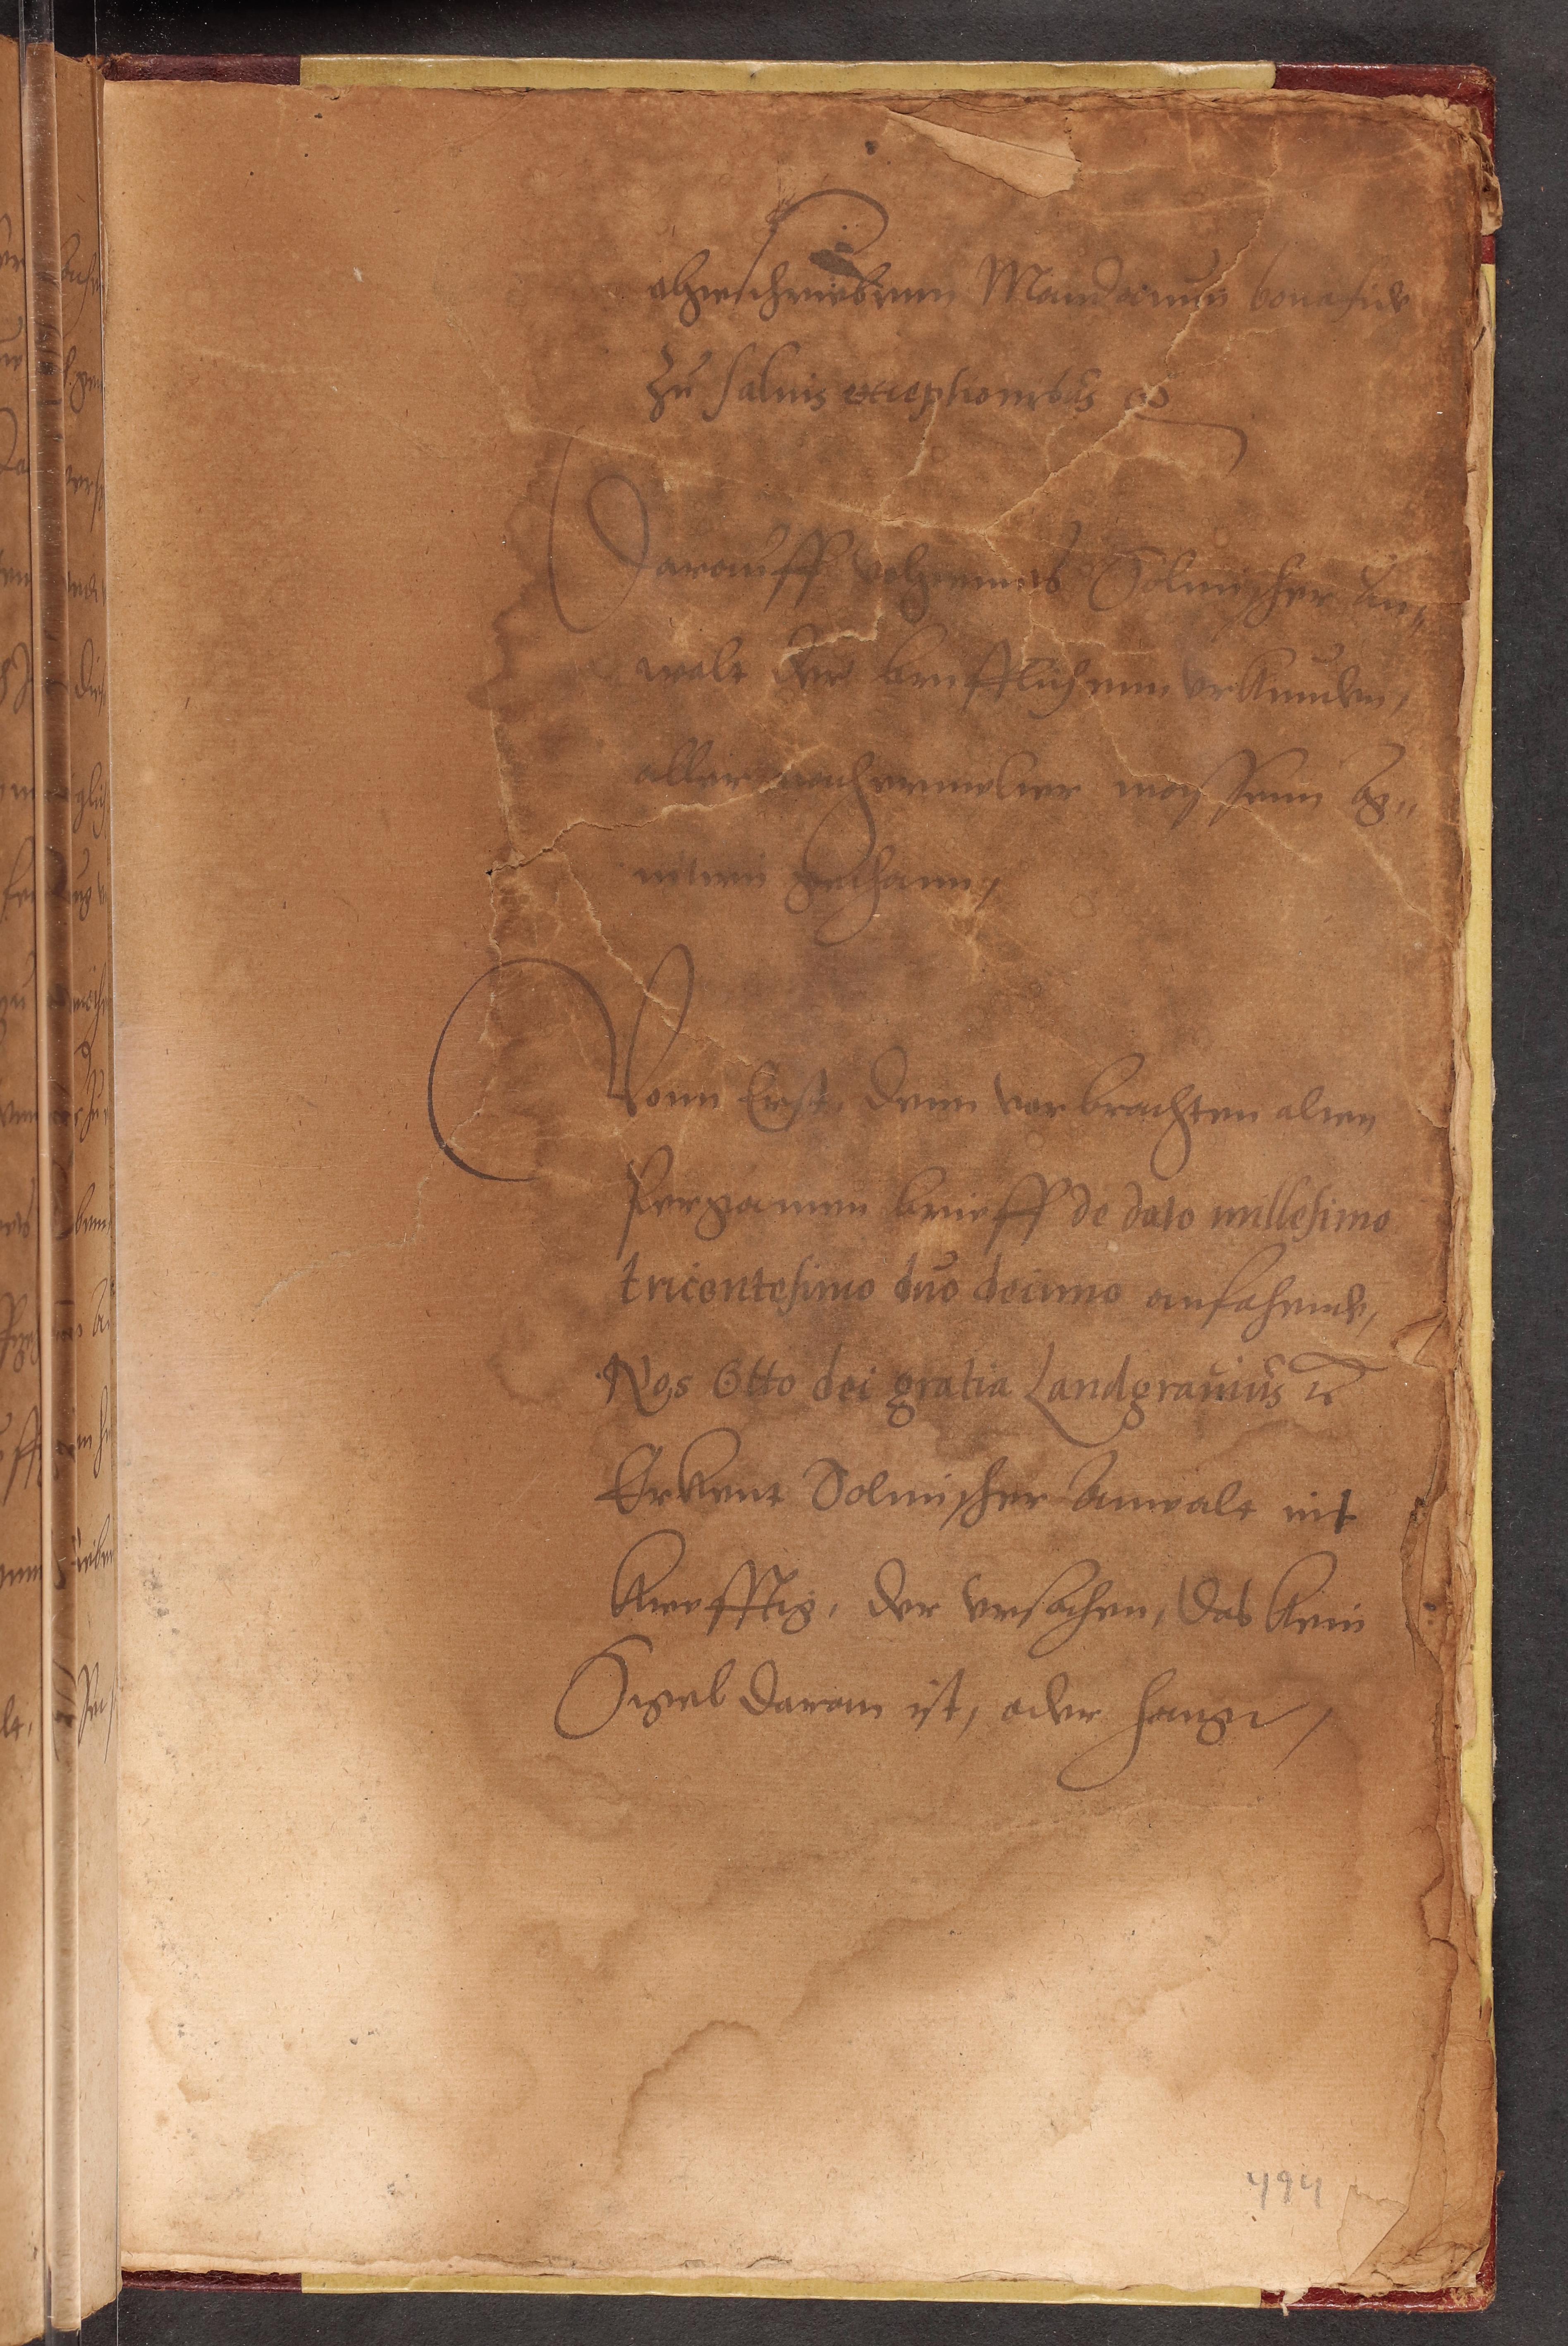 abgeschriebenn Mandatum bonafide
zu saluis exceptionibus
Darauff volgenndts Solmischer An„
walt der brifflichenn vrkunden,
aller nachermelter massenn
gethann,
Vonn Erst, denn vorbrachten alten
Pergamen brieff de dato millesimo
tricentesimo duo decimo anfahende,
Nos Otto dei gratia Landgrauius ꝛc
Erkent Solmischer Anwalt nit
krefftig, der vrsachen, das kein
Sigel daran ist, oder hangt,
494